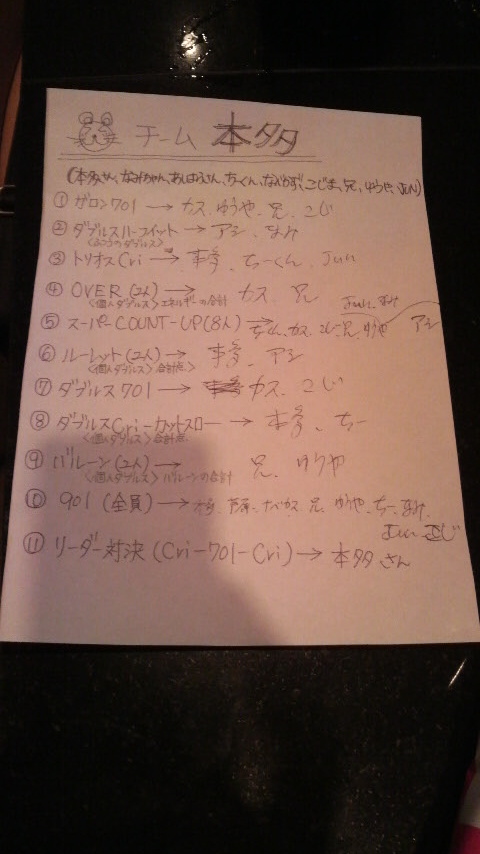 チーム 本多
(本多さん、なみちゃん、あしはらさん、ちーくん、なべかず、こじま、兄、ゆうや、JUN)
① ガロン701 → カズ、ゆうや、兄、こじ
② ダブルスハーフイット → アシ、なみ
<ふつうのダブルス>
③ トリオスCri → 本多、ちーくん、Jun
④ OVER (2人) → カズ 兄
<個人ダブルス> エネルギーの合計
Jun、なみ
⑤ スーパーCOUNT-UP(8人) → ちーくん、カズ、こじ、兄、ゆうや アシ
⑥ ルーレット(2人) → 本多、アシ
<個人ダブルス> 合計点
⑦ ダブルス 701 → カズ、こじ
⑧ ダブルスCri-カットスロー → 本多、ちー
<個人ダブルス> 合計点
⑨ バルーン(2人) → 兄、ゆうや
<個人ダブルス> バルーンの合計
⑩ 901 (全員) → カズ、兄、ゆうや、ちー、なみ、
Jun、こじ
⑪ リーダー対決 (Cri-701-Cri) → 本多さん